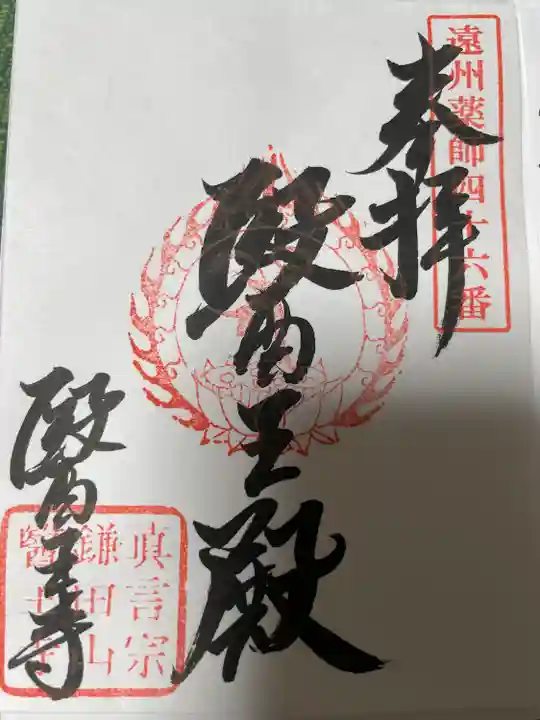 遠州薬師四十六番
奉拝
醫王殿
醫王寺
真言宗
鎌田山
醫王寺